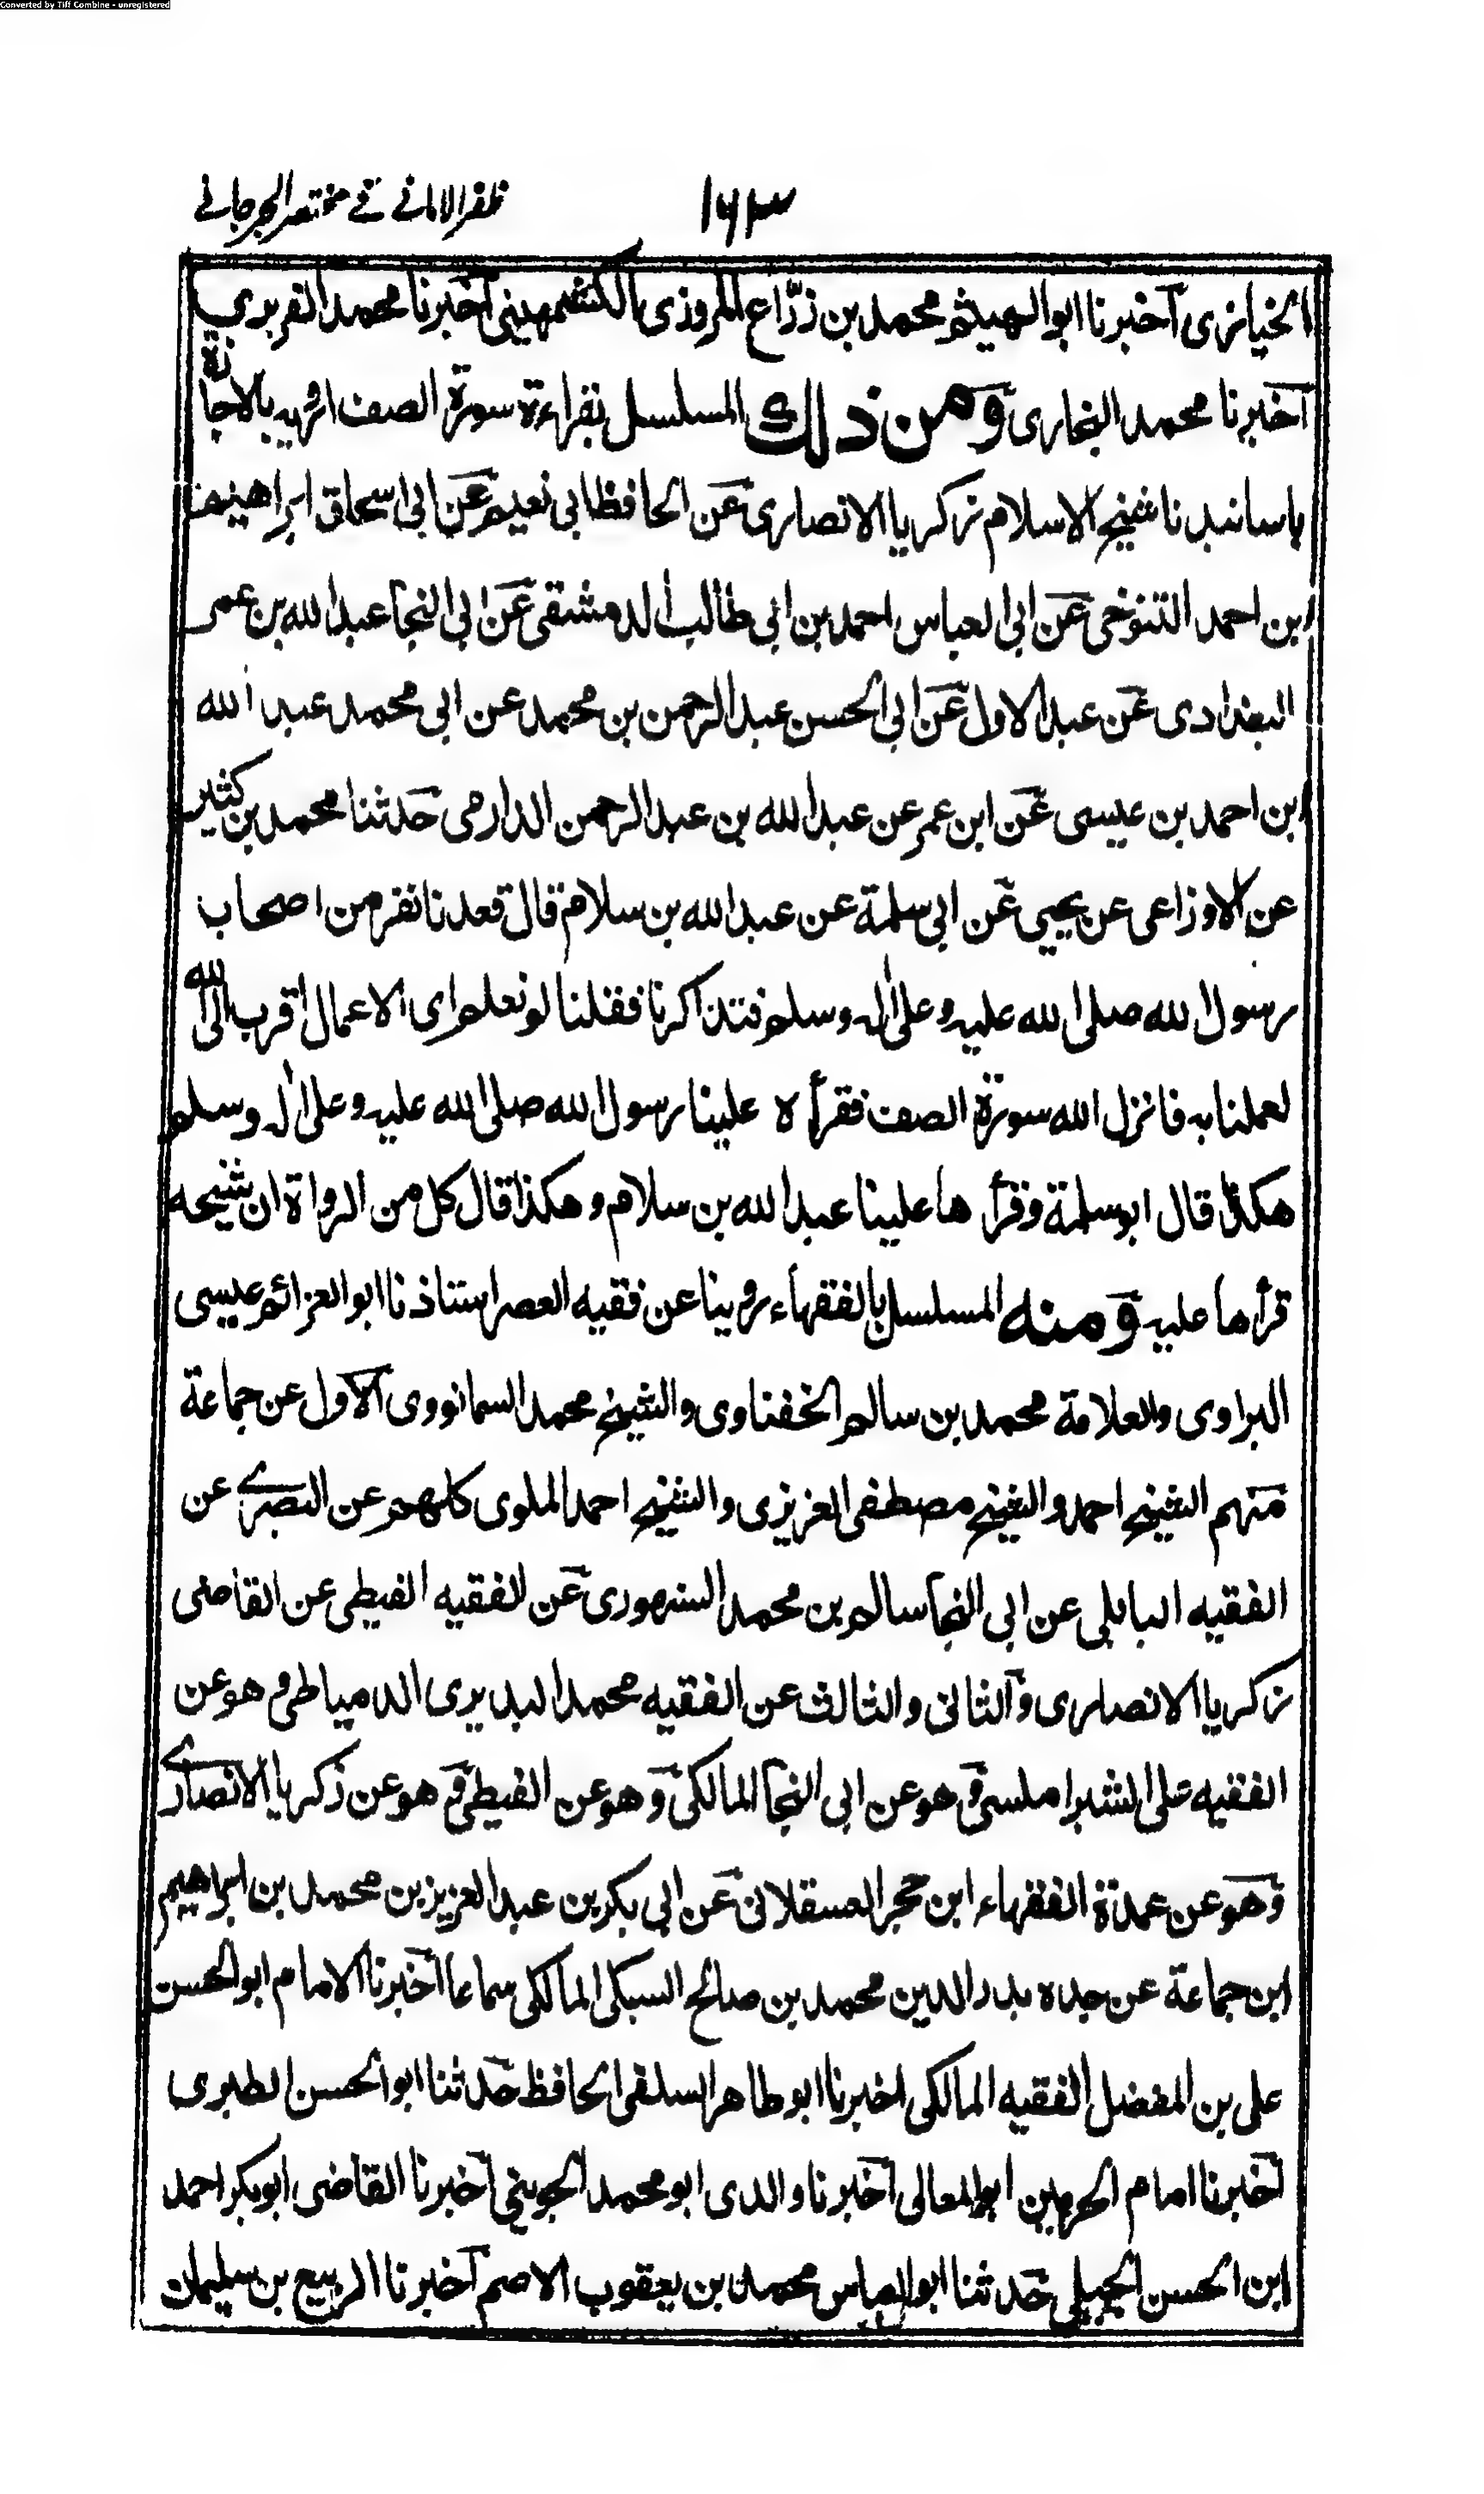 Converted by Tiff Combine - unregistered
۱۶۳ ظفر الامانی فی مختصر الجرجانی
الخبازی آخبرنا ابو الهیثم محمد بن زرّاع المروزی الکشمهینی آخبرنا محمد الفربری
آخبرنا محمد البخاری ومن ذلك المسلسل بقراءة سورة الصف ارویه بالاجازة
باسانید نا شیخ الاسلام زکریا الانصاری عن الحافظ ابی نعیم عن ابی اسحاق ابراهیم
ابن احمد التنوخی عن ابی العباس احمد بن ابی طالب الدمشقی عن ابی النجا عبد الله بن عمر
البغدادی عن عبد الاول عن ابی الحسن عبد الرحمن بن محمد عن ابی محمد عبد الله
ابن احمد بن عیسی عن ابن عمر عن عبد الله بن عبد الرحمن الدارمی حدثنا محمد بن کثیر
عن الاوزاعی عن یحیی عن ابی سلمة عن عبد الله بن سلام قال قعدنا نفر من اصحاب
رسول الله صلی الله علیه وعلی اله وسلم فتذاکرنا فقلنا لو نعلم ای الاعمال اقرب الی الله
لعملنا به فانزل الله سورة الصف فقرأه علینا رسول الله صلی الله علیه وعلی اله وسلم
هکذا قال ابو سلمة وقرأها علینا عبد الله بن سلام وهکذا قال کل من الرواة ان شیخه
قرأها علیه ومنه المسلسل بالفقهاء روینا عن فقیه العصر استاذنا ابو العزائم عیسی
البراوی والعلامة محمد بن سالم الخفناوی والشیخ محمد السمانووی الآول عن جماعة
منهم الشیخ احمد والشیخ مصطفی العزیزی والشیخ احمد الملوی کلهم عن البصری عن
الفقیه البابلی عن ابی النجا سالم بن محمد السنهوری عن الفقیه الغیطی عن القاضی
زکریا الانصاری والثانی والثالث عن الفقیه محمد البدیری الدمیاطی وهو عن
الفقیه علی الشبراملسی وهو عن ابی النجا المالکی وهو عن الغیطی وهو عن زکریا الانصاری
وهو عن عمدة الفقهاء ابن حجر العسقلانی عن ابی بکر بن عبد العزیز بن محمد بن ابراهیم
ابن جماعة عن جده بدر الدین محمد بن صالح السبکی المالکی سماعا آخبرنا الامام ابو الحسن
علی بن المفضل الفقیه المالکی اخبرنا ابو طاهر السلفی الحافظ حدثنا ابو الحسن الطبری
آخبرنا امام الحرمین ابو المعالی آخبرنا والدی ابو محمد الجوینی آخبرنا القاضی ابو بکر احمد
ابن الحسن الجبلی حدثنا ابو العباس محمد بن یعقوب الاصم آخبرنا الربیع بن سلیمان